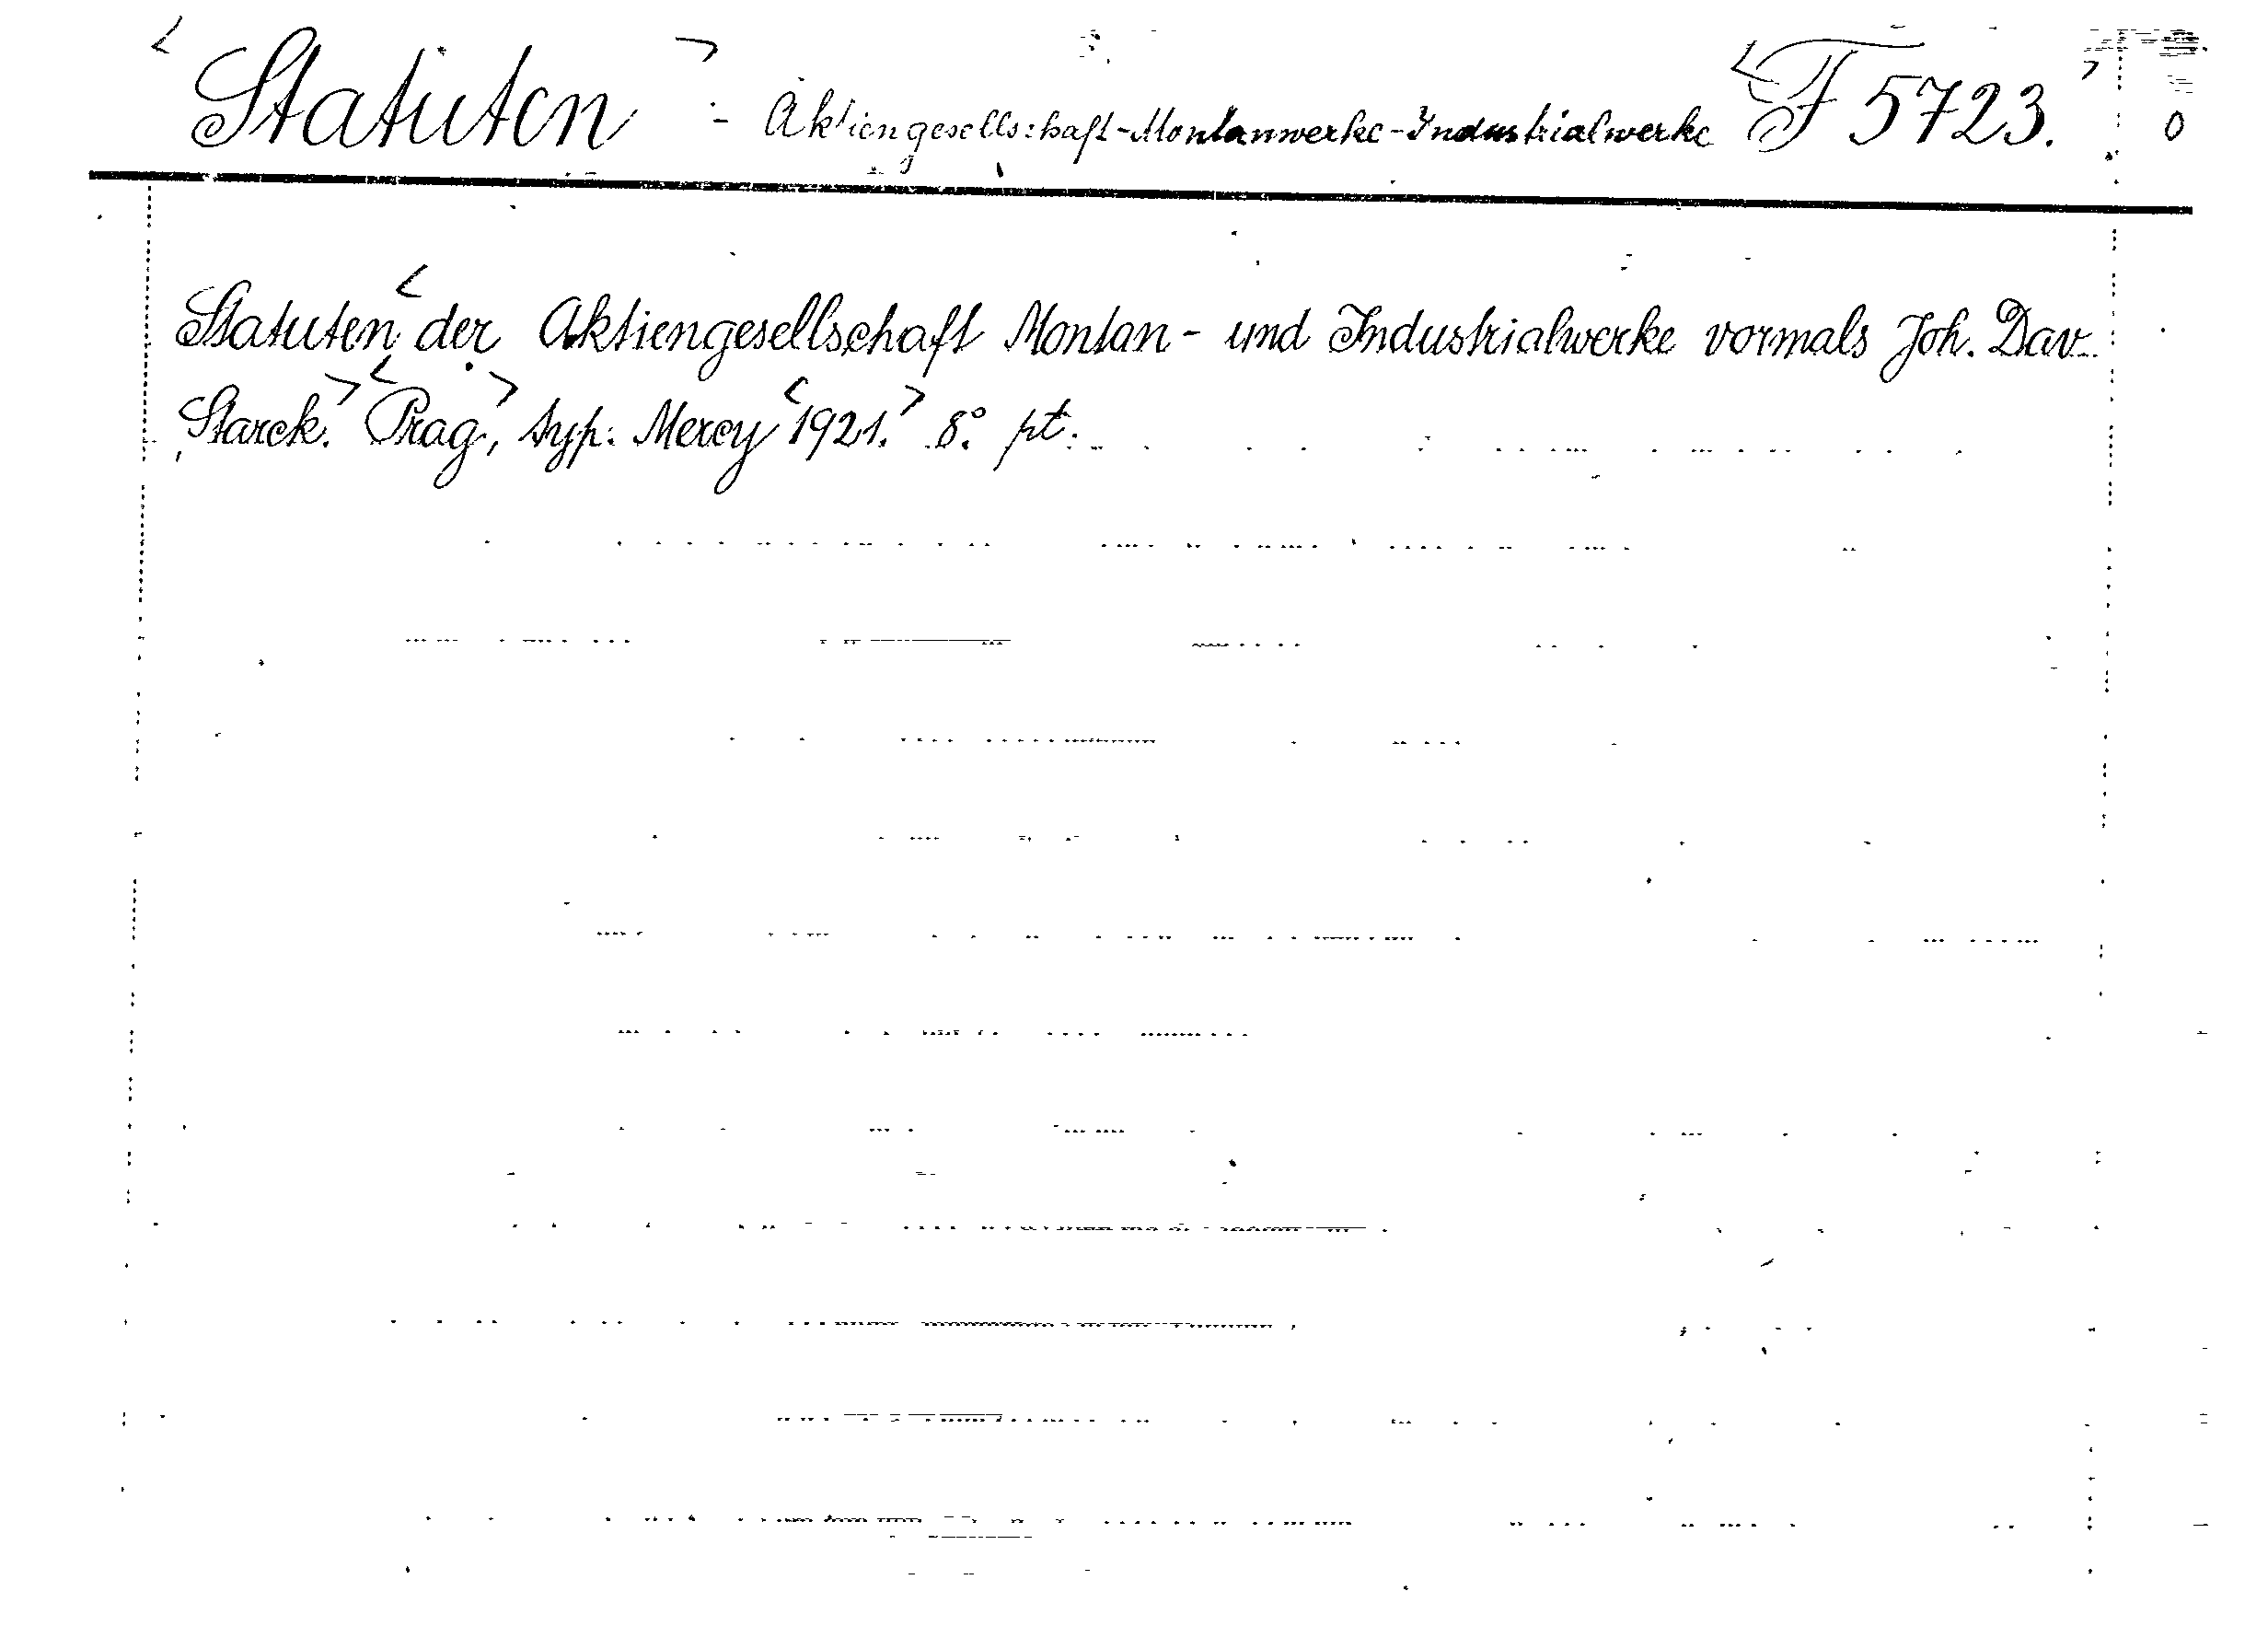 <Statuten> - Aktiengesellschaft-Montanwerke-Industrialwerke <F 5723.> 0
Statuten <der Aktiengesellschaft Montan- und Industrialwerke vormals Joh. Dav.
Starck.> <Prag>, typ. Mercy <1921.> 8° pt.